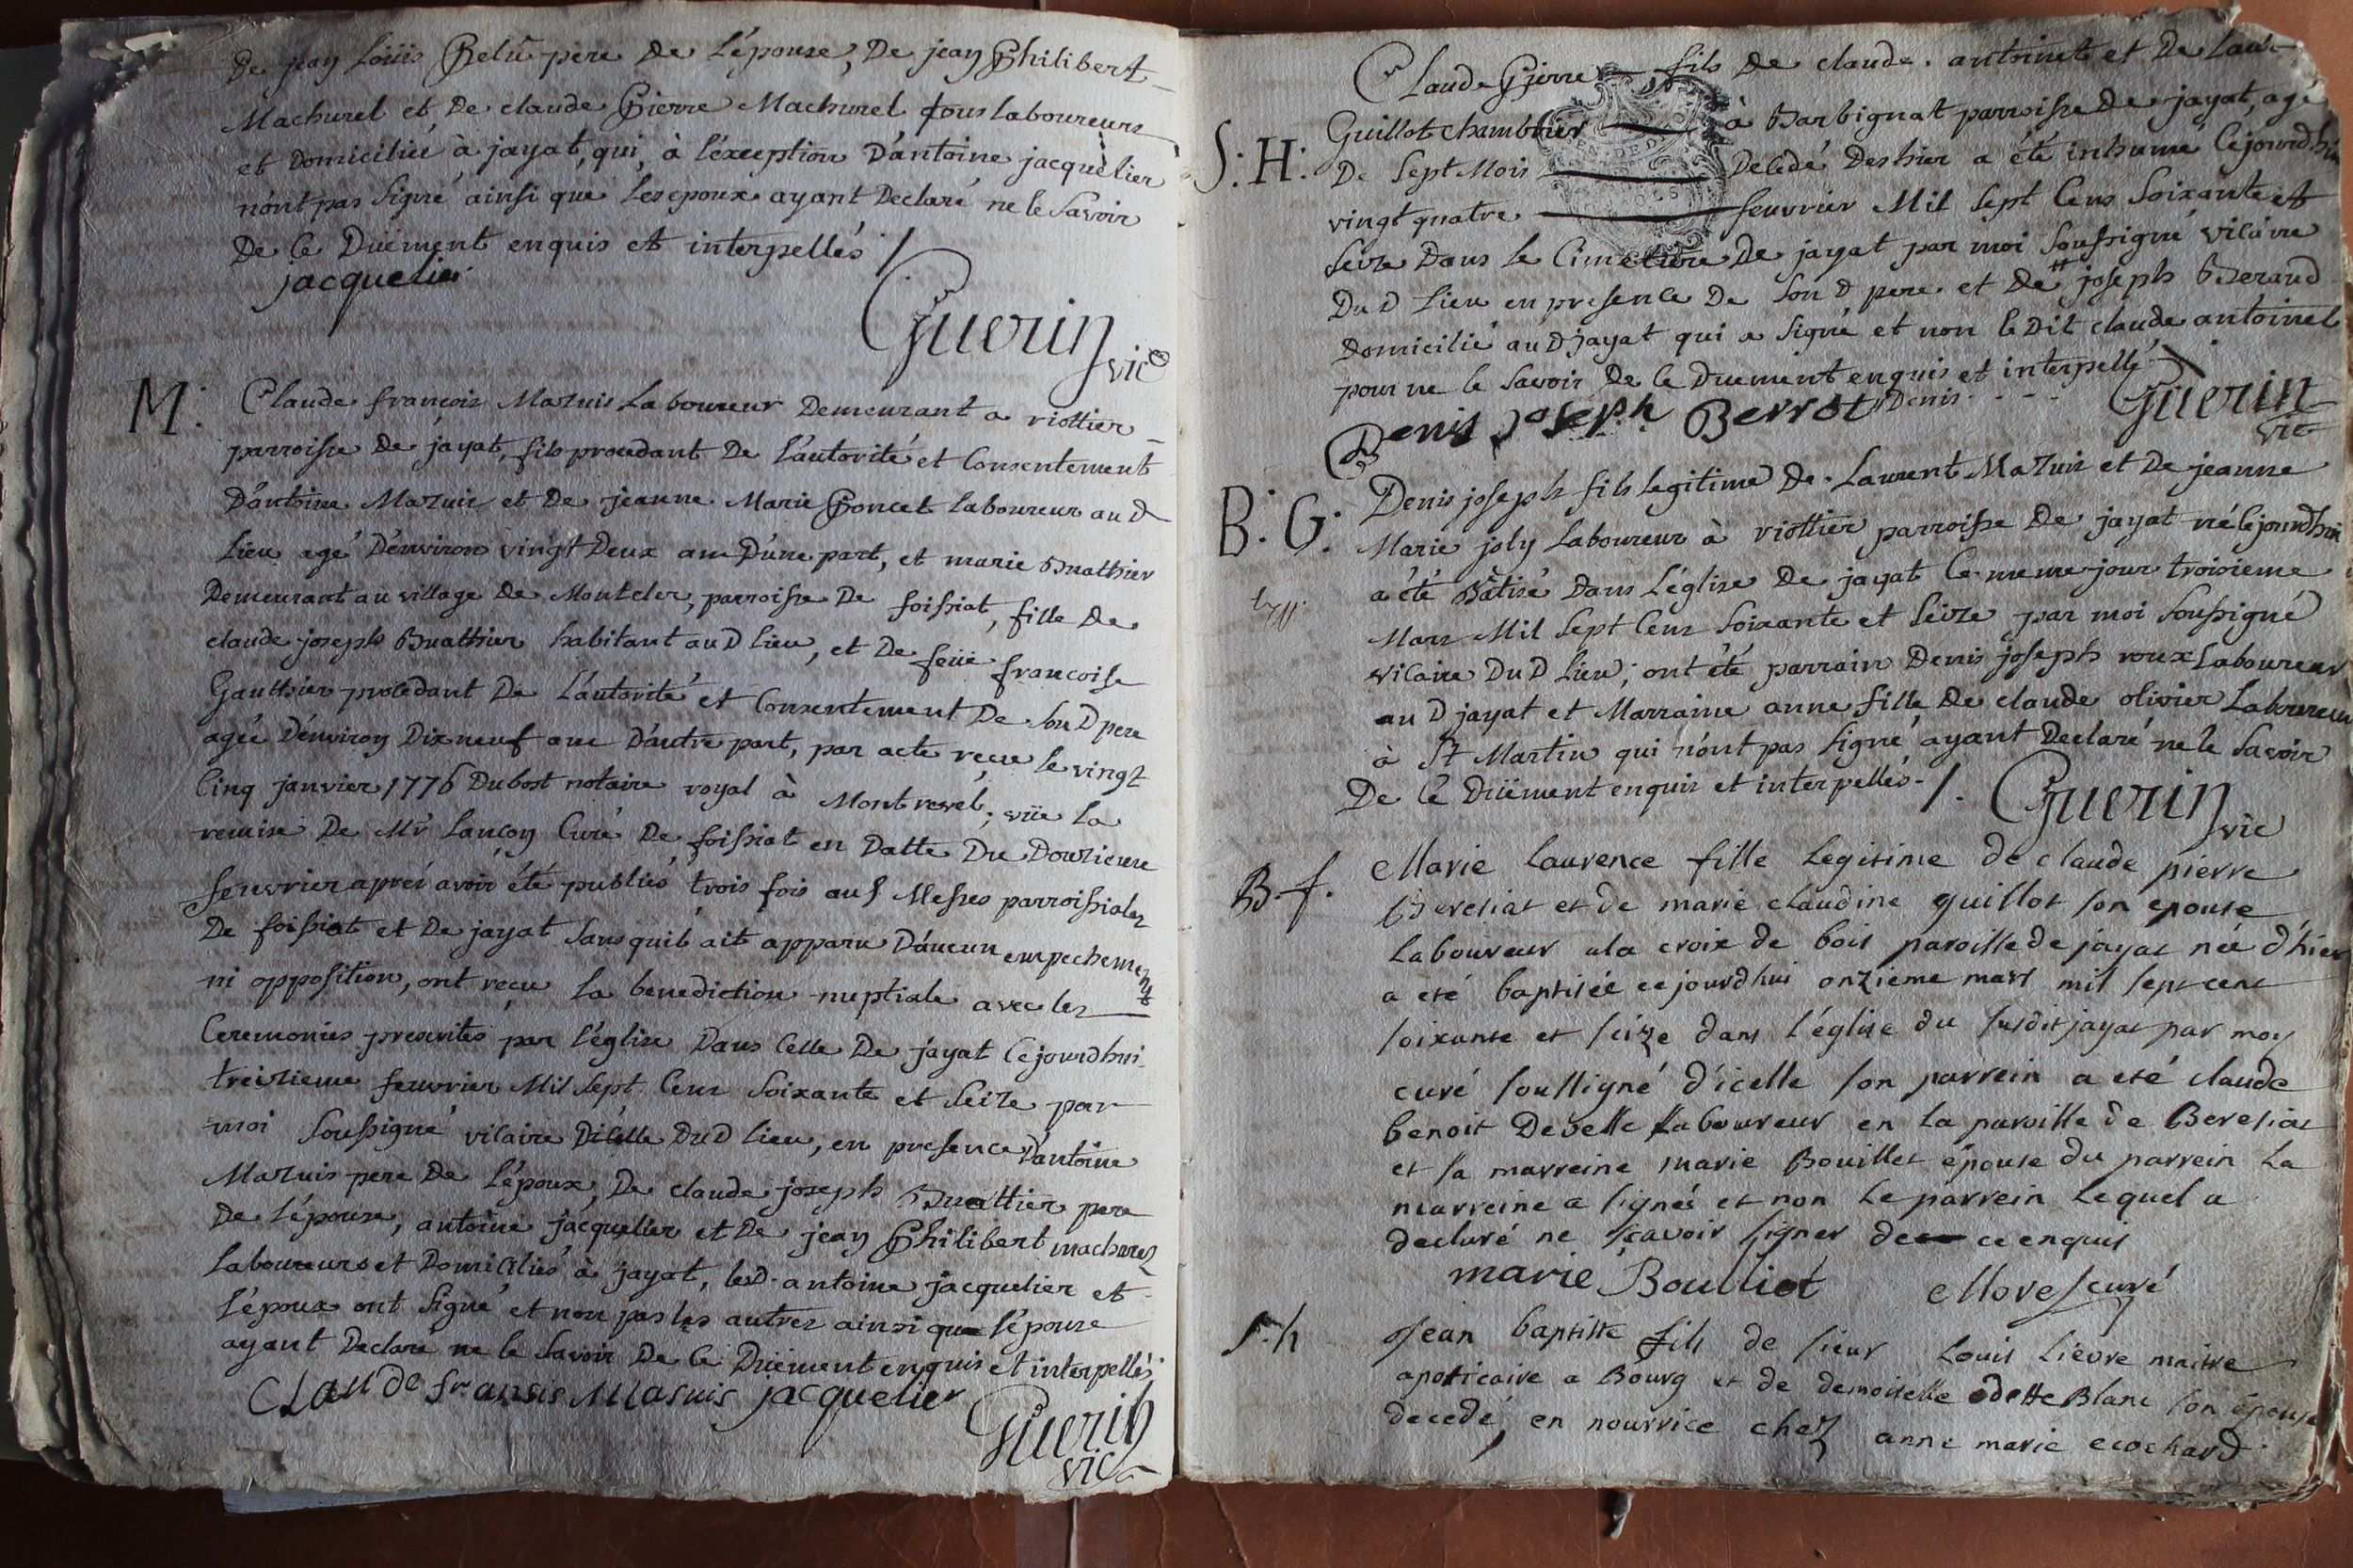 De jean Loüis Belü père De L'épouse, De jean Philibert
Machurel et De claude Pierre Machurel tous Laboureurs
et Domiciliés à jayat, qui, à l'éxception D'antoine jacquelier
n'ont pas signé ainsi que Les epoux ayant Declaré ne le Savoir
De Ce Düement enquis et interpellés /
jacquelier
Guerin
vic
M: Claude francois Mazuis Laboureur Demeurant a viottier
parroisse De jayat, fils procedant De L'autorité et Consentement
D'antoine Mazuis et De jeanne Marie Poncet Laboureur au D
Lieu agé D'environ vingt Deux ans D'une part, et marie Buathier
Demeurant au village De Montcler, parroisse De foissiat, fille De
claude joseph Buathier habitant au D Lieu, et De feüe francoise
Gauthier procedant De L'autorité et Consentement De Son D pere
agée D'environ Dixneuf ans D'autre part, par acte recue le vingt
Cinq janvier 1776 Dubost notaire royal à Montrevel; vüe La
remise De Mr Lançon Curé De foissiat en Datte Du Douzieme
feuvrier aprés avoir été publiés trois fois aux Messes parroissiales
De foissiat et De jayat Sans quil ait apparu D'aucun empechement
ni opposition, ont recu La benediction nuptiale avec les
Ceremonies prescrites par L'église Dans Celle De jayat Cejourdhui
treizieme feuvrier Mil Sept Cens Soixante et Seize par
moi Soussigné vicaire Dicelle Dud Lieu, en presence D'antoine
Mazuis pere De L'époux, De claude joseph Buathier pere
De L'épouse, antoine jacquelier et De jean Philibert machurel
Laboureurs et Domiciliés à jayat, Lesd. antoine jacquelier et
L'époux ont Signé et non pas les autres ainsi que L'épouse
ayant Declaré ne le Savoir De Ce Düement enquis et interpellés
CLaude fransis Masuis jacquelier
Guerin
vic
Claude Pierre fils De claude antoinet et De Laur
Guillot chambrier à Barbignat parroisse De jayat, agé
S: H: De Sept Mois Decedé Des hier a été inhumé Cejourdhui
vingt quatre feuvrier Mil Sept Cens Soixante et
Seize Dans le Cimetiere De jayat par moi Soussigné vicaire
Du D Lieu en presence De Son D pere et De joseph Beraud
Domicilié au D jayat qui a Signé et non le Dit claude antoinet
pour ne le Savoir De Ce Duement enquis et interpellé
Denis
Denis joseph Berrot Guerin
vic
B: G: Denis joseph fils Legitime De Laurent Mazuis et De jeanne
Marie joly Laboureur à viottier parroisse De jayat né Cejourdhui
a été Bâtisé Dans L'église De jayat Ce meme jour troisieme
Mars Mil Sept Cens Soixante et Seize par moi Soussigné
vicaire Du D Lieu; ont été parrain Denis joseph roux Laboureur
au D jayat et Marraine anne fille De claude olivier Laboureur
à St Martin qui n'ont pas Signé ayant Declaré ne le Savoir
De Ce Düement enquis et interpellés ./.
Guerin
vic
B.f. Marie Laurence fille Legitime de claude pierre
Bereziat et de marie claudine guillot son epouse
Laboureur a la croix de bois paroisse de jayat née d'hier
a eté baptisée cejourdhui onzieme mars mil sept cent
soixante et seize dans l'église du susdit jayat par moy
curé soussigné d'icelle son parrein a eté claude
benoit Develle Laboureur en la paroisse de Bereziat
et sa marreine marie Bouillet épouse du parrein La
marreine a signés et non Le parrein Lequel a
declaré ne sçavoir signer de ce enquis
marie Boulliot Morel curé
S.h Jean baptiste fils de sieur Louis Lievre maitre
apoticaire a Bourg et de demoiselle odette Blanc son épouse
decedé, en nourrice chez anne marie ecochard